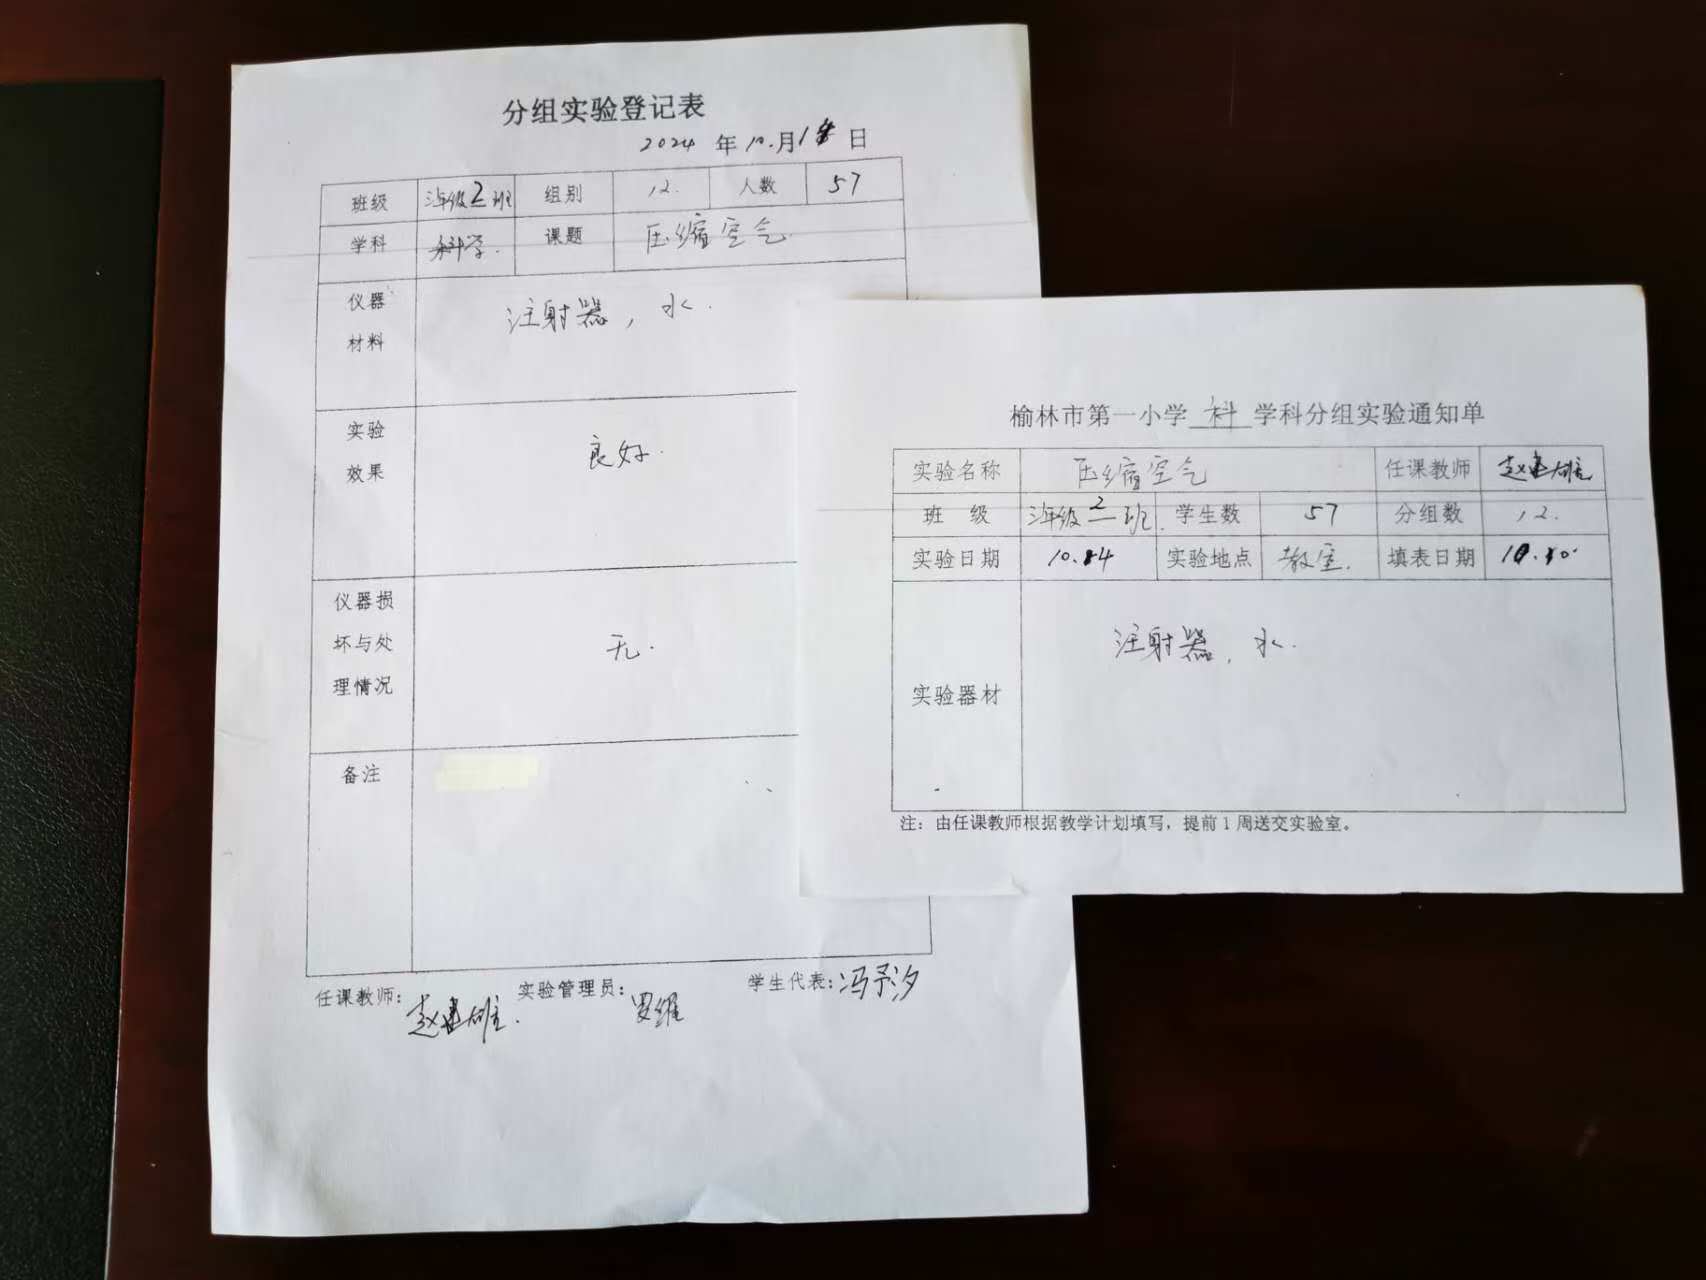 分组实验登记表
2024 年 10.月 日
班级 三年级2班 组别 12. 人数 57
学科 科学. 课题 压缩空气.
仪器
材料
注射器，水.
实验
效果
良好.
仪器损
坏与处
理情况
无.
备注
任课教师：赵建雄. 实验管理员：罗维 学生代表：冯予汐
榆林市第一小学 科 学科分组实验通知单
实验名称 压缩空气 任课教师 赵建雄
班 级 三年级2班. 学生数 57 分组数 12.
实验日期 实验地点 教室. 填表日期
实验器材 注射器，水.
注：由任课教师根据教学计划填写，提前1周送交实验室。